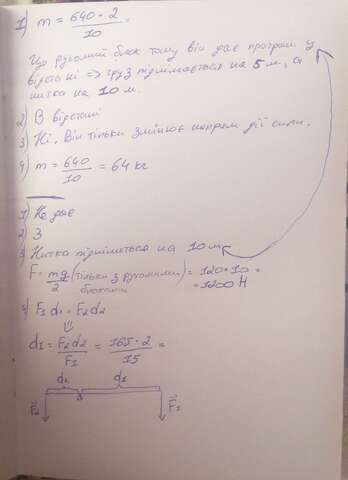 1) m = 640 · 2 / 10 =
Це рухомий блок тому він дає програш у
відстані => груз підіймається на 5 м, а
нитка на 10 м.
2) В відстані
3) Ні. Він тільки змінює напрям дії сили.
4) m = 640 / 10 = 64 кг
1) Не дає
2) 3
3) Нитка підніметься на 10 м
F = mg / 2 (тільки з рухомими блоками) = 120 · 10 =
= 1200 Н
F1 d1 = F2 d2
d1 = F2 d2 / F1 = 165 · 2 / 15 =
d2 d1
F2 F1